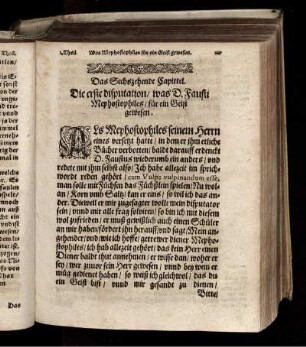 I. Theil. Was Mephostophiles für ein Geist gewesen.
Das Sechszehende Capittel.
Die erste disputation/ was D. Fausti
Mephostophiles/ für ein Geist
gewesen.
ALs Mephostophiles seinem Herrn
eines versetzt hatte/ in dem er ihm etliche
Bücher verboten/ baldt darauff erdenckt
D. Faustus wiederumb ein anders/ vnd
redete mit ihm selbst also/ Ich habe allezeit im sprich-
wort reden gehört/ cum Vulpe vulpinandum esse,
man solle mit Füchsen das Füchßlein spielen/ Nu wol-
an/ Korn vmb Saltz/ kan er eins/ so wil ich das an-
der. Dieweil er mir zugesagt er wolle mein disputator
sein/ vnnd mir auff
wol zufrieden/ er muß gewißlich auch einen Schüler
an mir haben/ fordert ihn herauß/ vnd sagt/ Mein an-
gehender/ vnd wie ich hoffe/ getrewer diener Mepho-
stophiles/ ich hab allezeit gehört/ das kein Herr einen
Diener baldt thut annehmen/ er wisse dan/ woher er
sey/ wer zuuor sein Herr gewesen/ vnnd bey wem er
gedienet haben/ so weiß ich gleichwol/ das du
ein Geist bist/ vnnd mir gesandt zu dienen/
Bitte/
Das